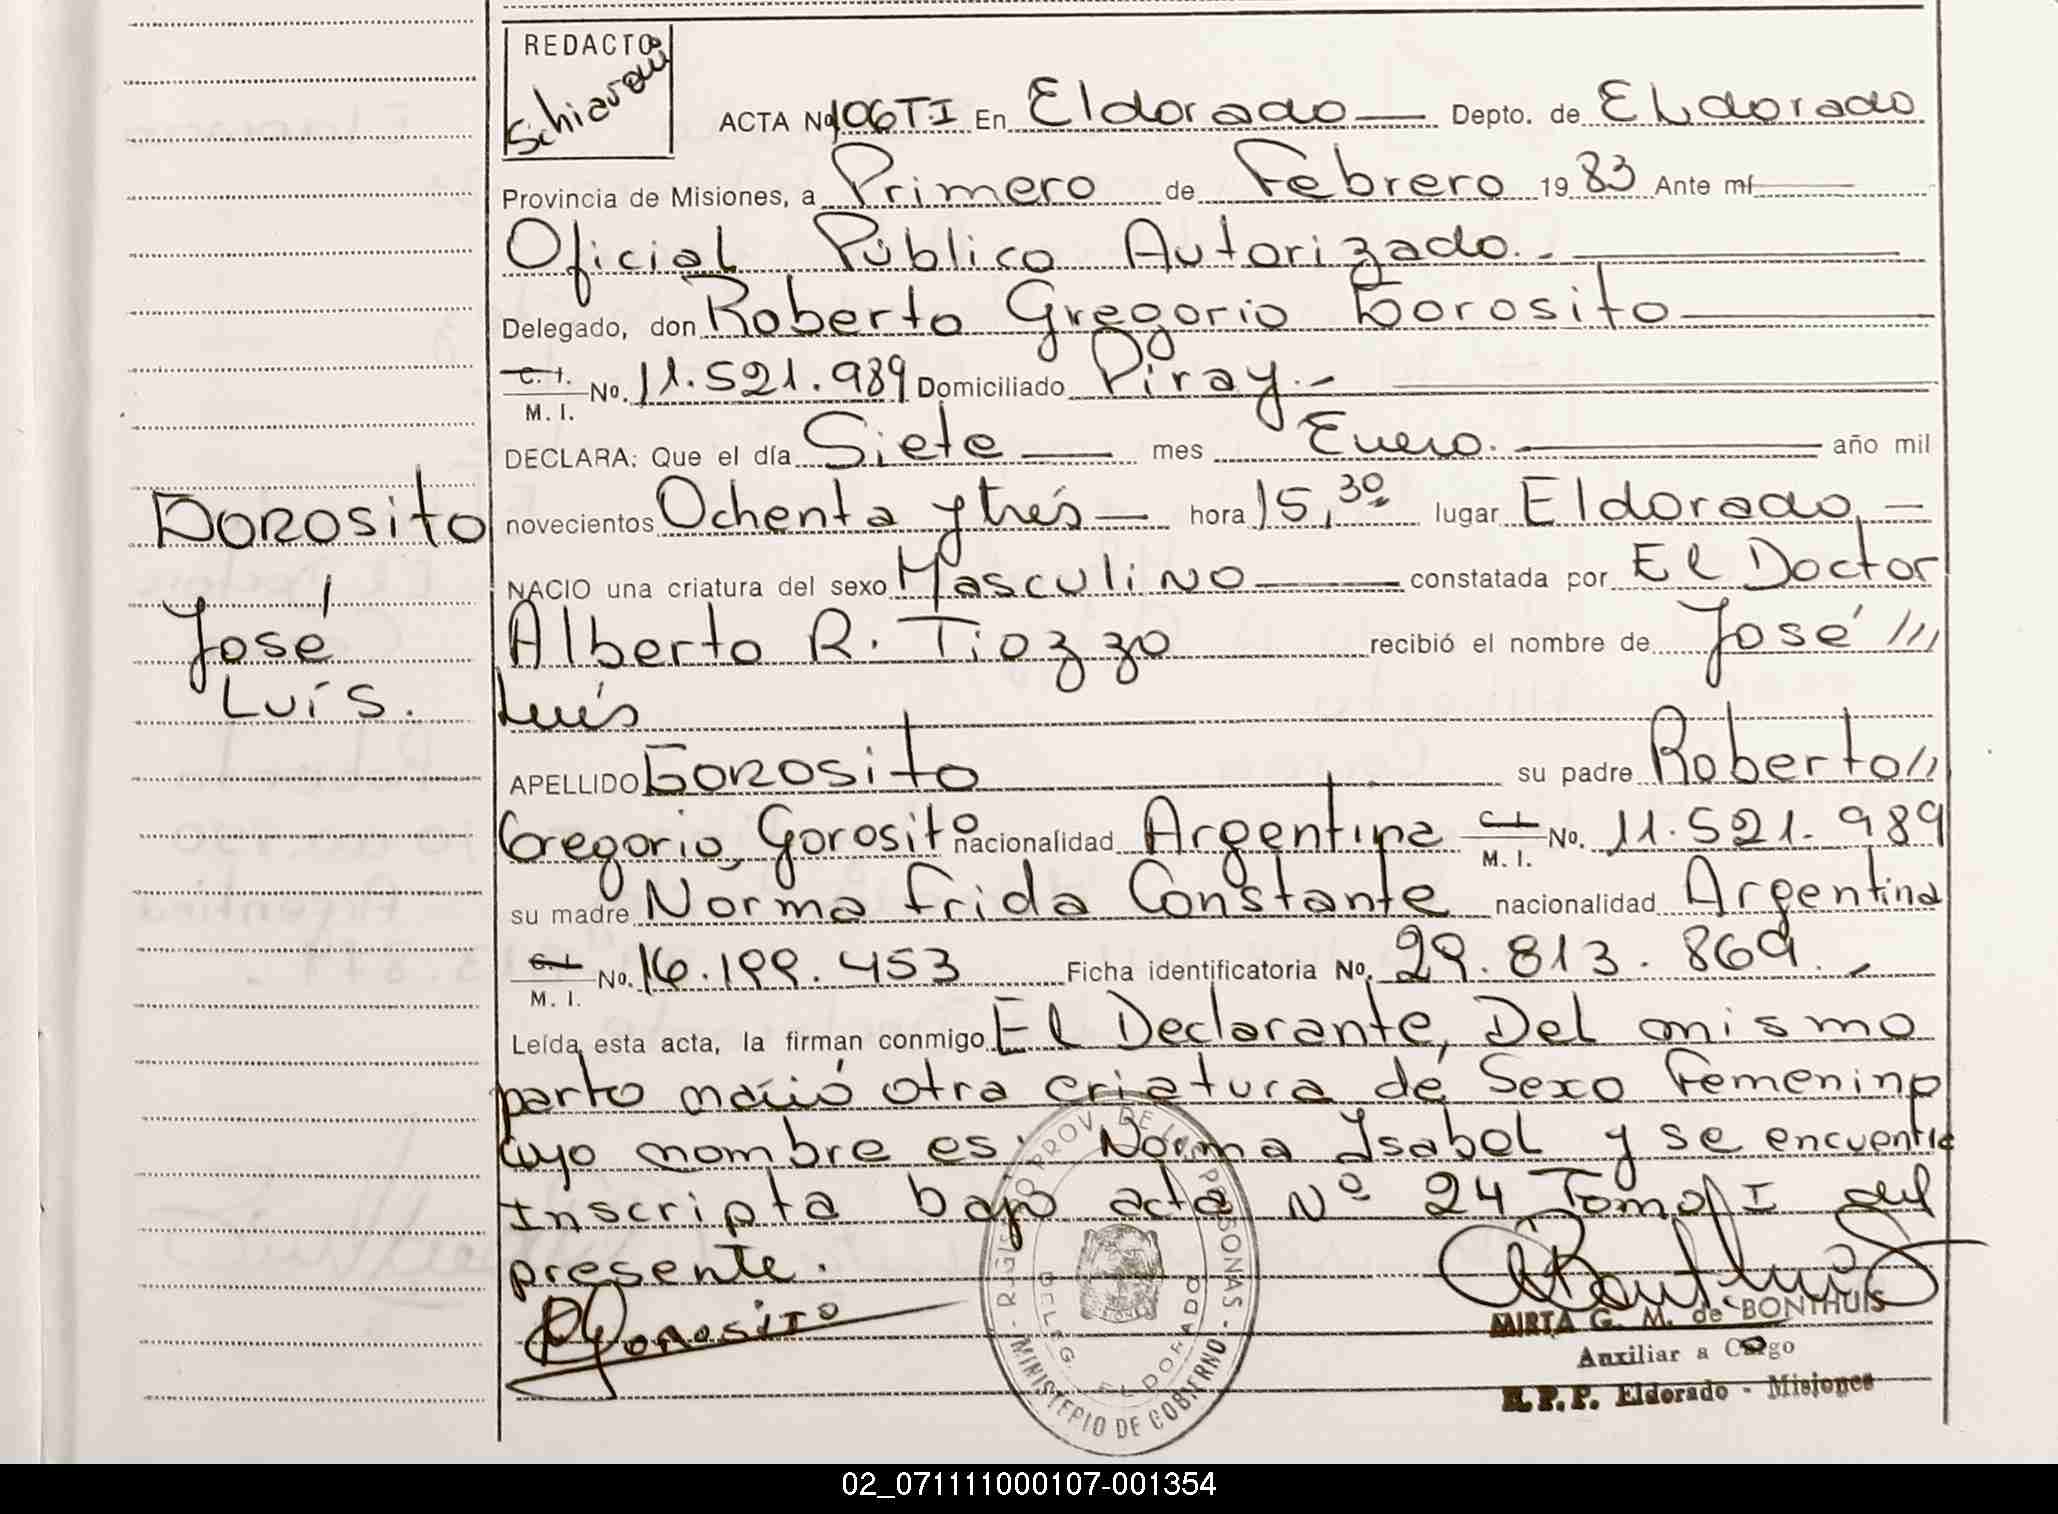 REDACTO
Schiavoni
ACTA No 106 TI En Eldorado Depto. de Eldorado
Provincia de Misiones, a Primero de Febrero 1983 Ante mí
Oficial Público Autorizado.-
Delegado, don Roberto Gregorio Gorosito
C. I.
M. I. No. 11.521.989 Domiciliado Piray.-
DECLARA: Que el día Siete mes Enero. año mil
novecientos Ochenta y trés hora 15,30 lugar Eldorado,
NACIO una criatura del sexo Masculino constatada por El Doctor
Alberto R. Tiozzo recibió el nombre de José ///
Luís
APELLIDO Gorosito su padre Roberto //
Gregorio, Gorosito nacionalidad Argentina C. I.
M. I. No. 11.521.989
su madre Norma Frida Constante nacionalidad Argentina
C. I.
M. I. No. 16.199.453 Ficha identificatoria No. 29.813.869.-
Leída esta acta, la firman conmigo El Declarante, Del mismo
parto nació otra criatura de Sexo Femenino
cuyo nombre es: Norma Isabel y se encuentra
Inscripta bajo acta Nº 24 Tomo I del
presente.
Gorosito
José
Luís.
RGorosito
REGISTRO PROV. DE LAS PERSONAS - MINISTERIO DE GOBIERNO -
DELEG. ELDORADO
MIRTA G. M. de BONTHUIS
Auxiliar a Cargo
R.P.P. Eldorado - Misiones
02_071111000107-001354